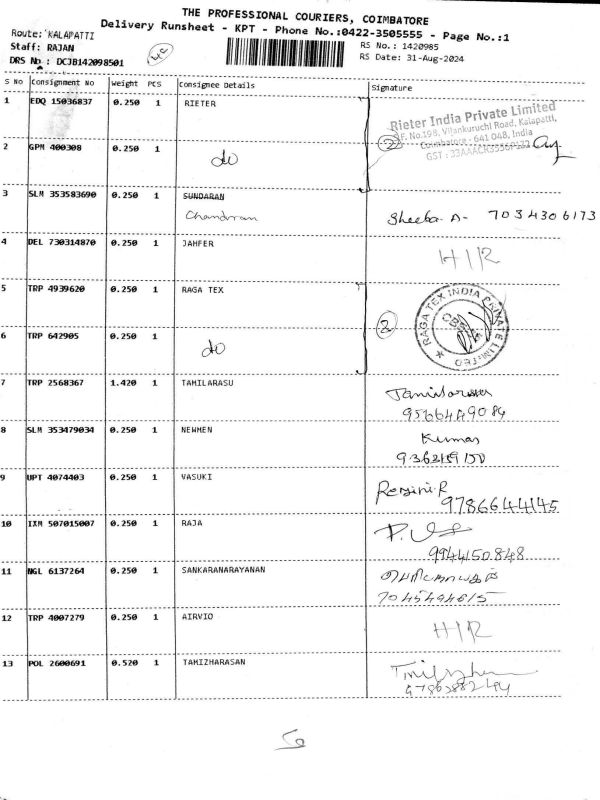 THE PROFESSIONAL COURIERS, COIMBATORE
Delivery Runsheet - KPT - Phone No.:0422-3505555 - Page No.:1
Route: KALAPATTI
Staff: RAJAN
DRS No : DCJB142098501
RS No.: 1420985
RS Date: 31-Aug-2024
S No Consignment No Weight PCS Consignee Details Signature
1 EDQ 15036837 0.250 1 RIETER
Rieter India Private Limited
S.F.No.198, Vilankuruchi Road, Kalapatti,
Coimbatore - 641 048, India
2 GPM 400308 0.250 1 do
2
3 SLM 353583690 0.250 1 SUNDARAN
Chandran Sheeba. A- 7034306173
4 DEL 730314870 0.250 1 JAHFER H/R
5 TRP 4939620 0.250 1 RAGA TEX
RAGA TEX INDIA PRIVATE LIMITED
2
6 TRP 642905 0.250 1 do
7 TRP 2568367 1.420 1 TAMILARASU
8 SLM 353479034 0.250 1 NEWMEN Kumar
9 UPT 4074403 0.250 1 VASUKI
9786644145
10 IXM 507015007 0.250 1 RAJA
9944150848
11 NGL 6137264 0.250 1 SANKARANARAYANAN
7045494615
12 TRP 4007279 0.250 1 AIRVIO H/R
13 POL 2600691 0.520 1 TAMIZHARASAN